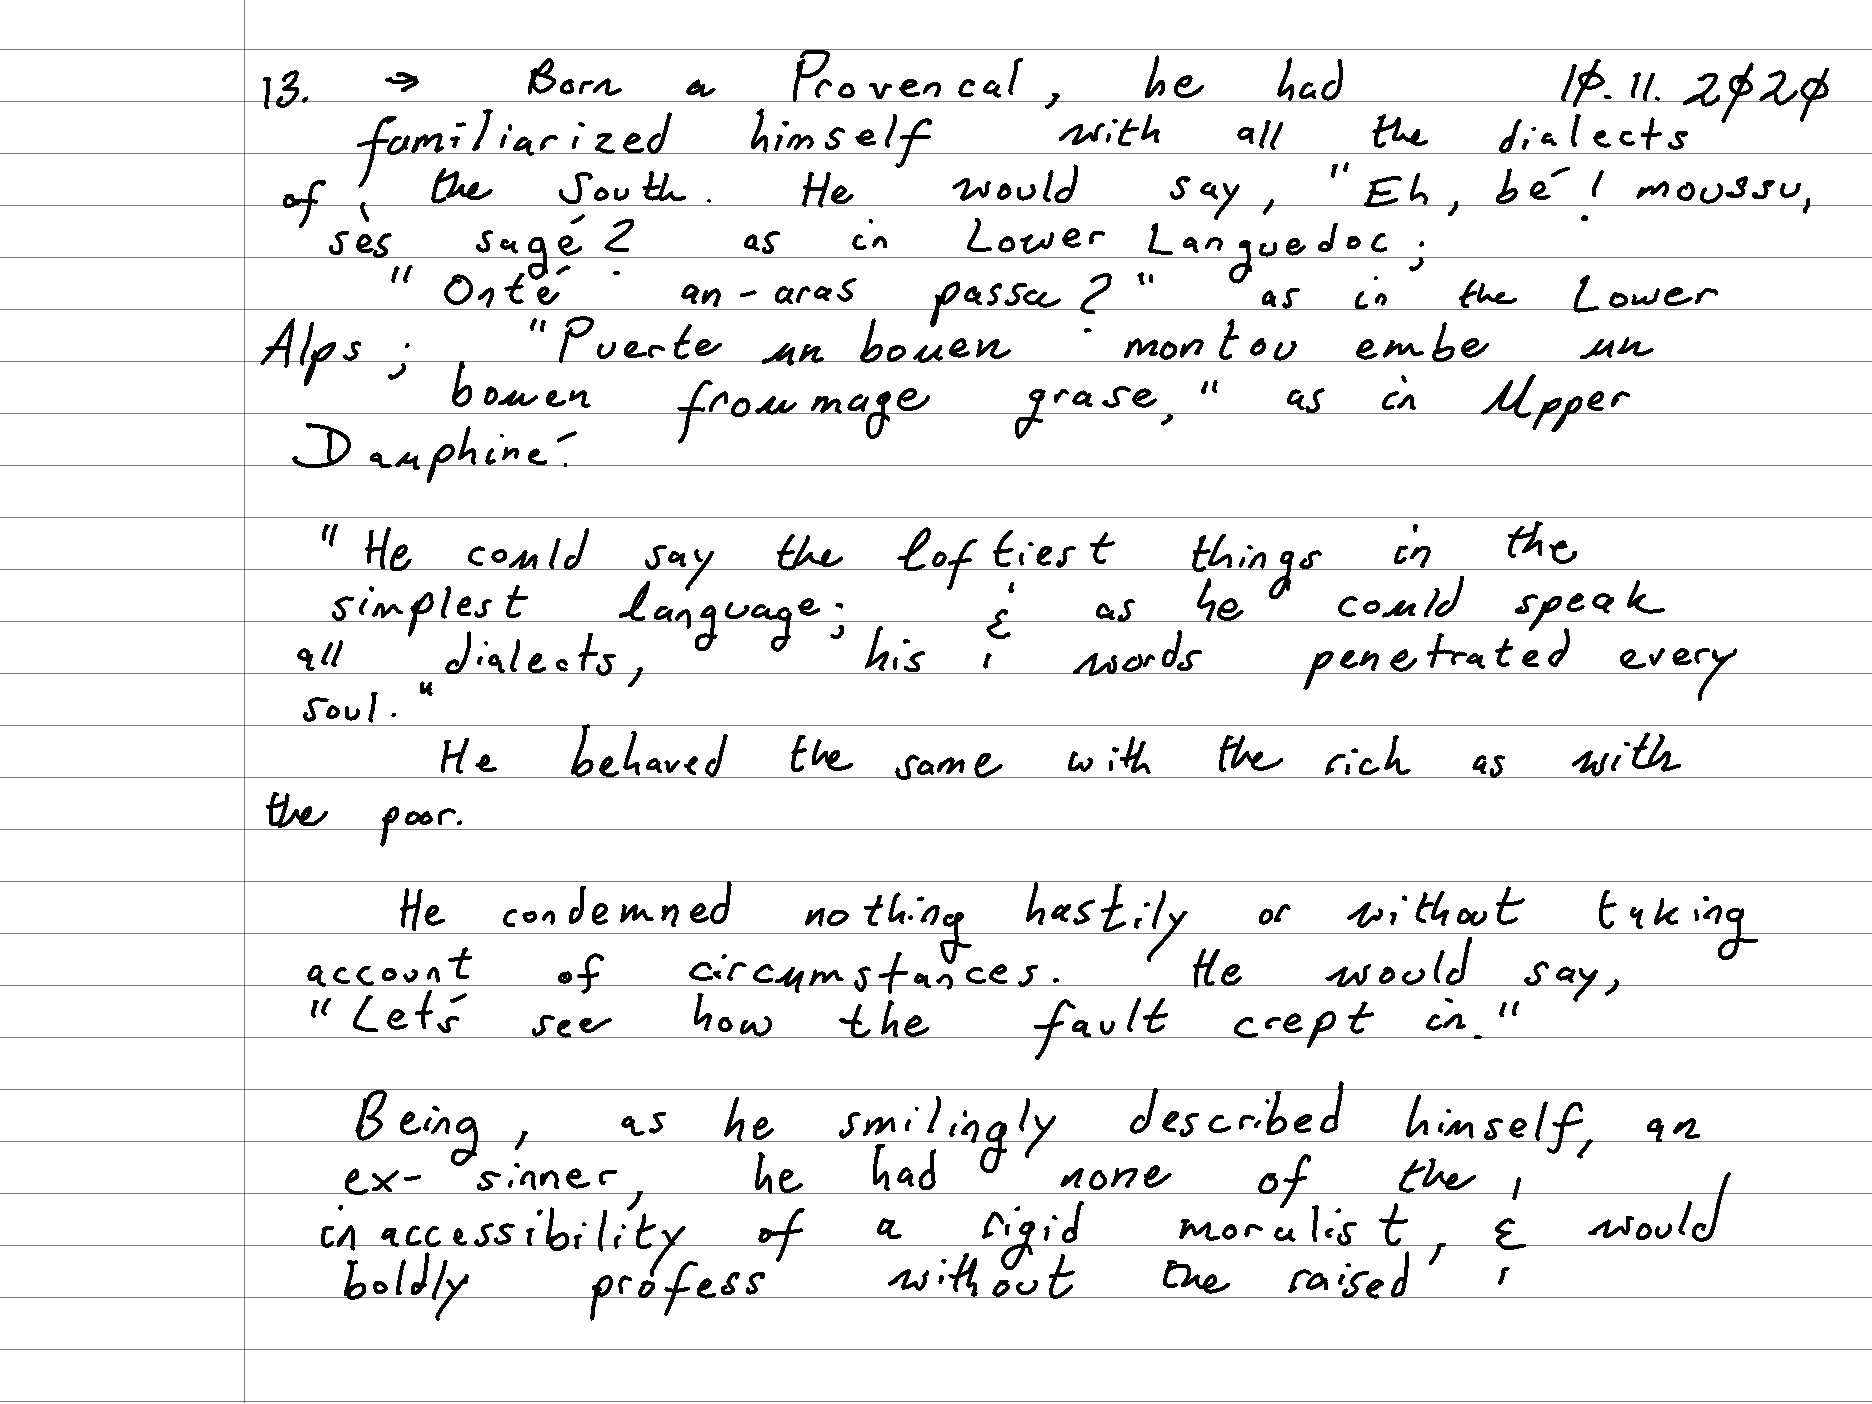 13. → Born a Provencal, he had 10.11.2020
familiarized himself with all the dialects
of the South. He would say, "Eh, bé! moussu,
sès sagé? as in Lower Languedoc;
"Onté an-aras passa?" as in the Lower
Alps; "Puerte un bouen montou embe un
bouen froumage grase," as in Upper
Dauphiné.
"He could say the loftiest things in the
simplest language; & as he could speak
all dialects, his words penetrated every
soul."
He behaved the same with the rich as with
the poor.
He condemned nothing hastily or without taking
account of circumstances. He would say,
"Let's see how the fault crept in."
Being, as he smilingly described himself, an
ex-sinner, he had none of the
inaccessibility of a rigid moralist, & would
boldly profess without the raised